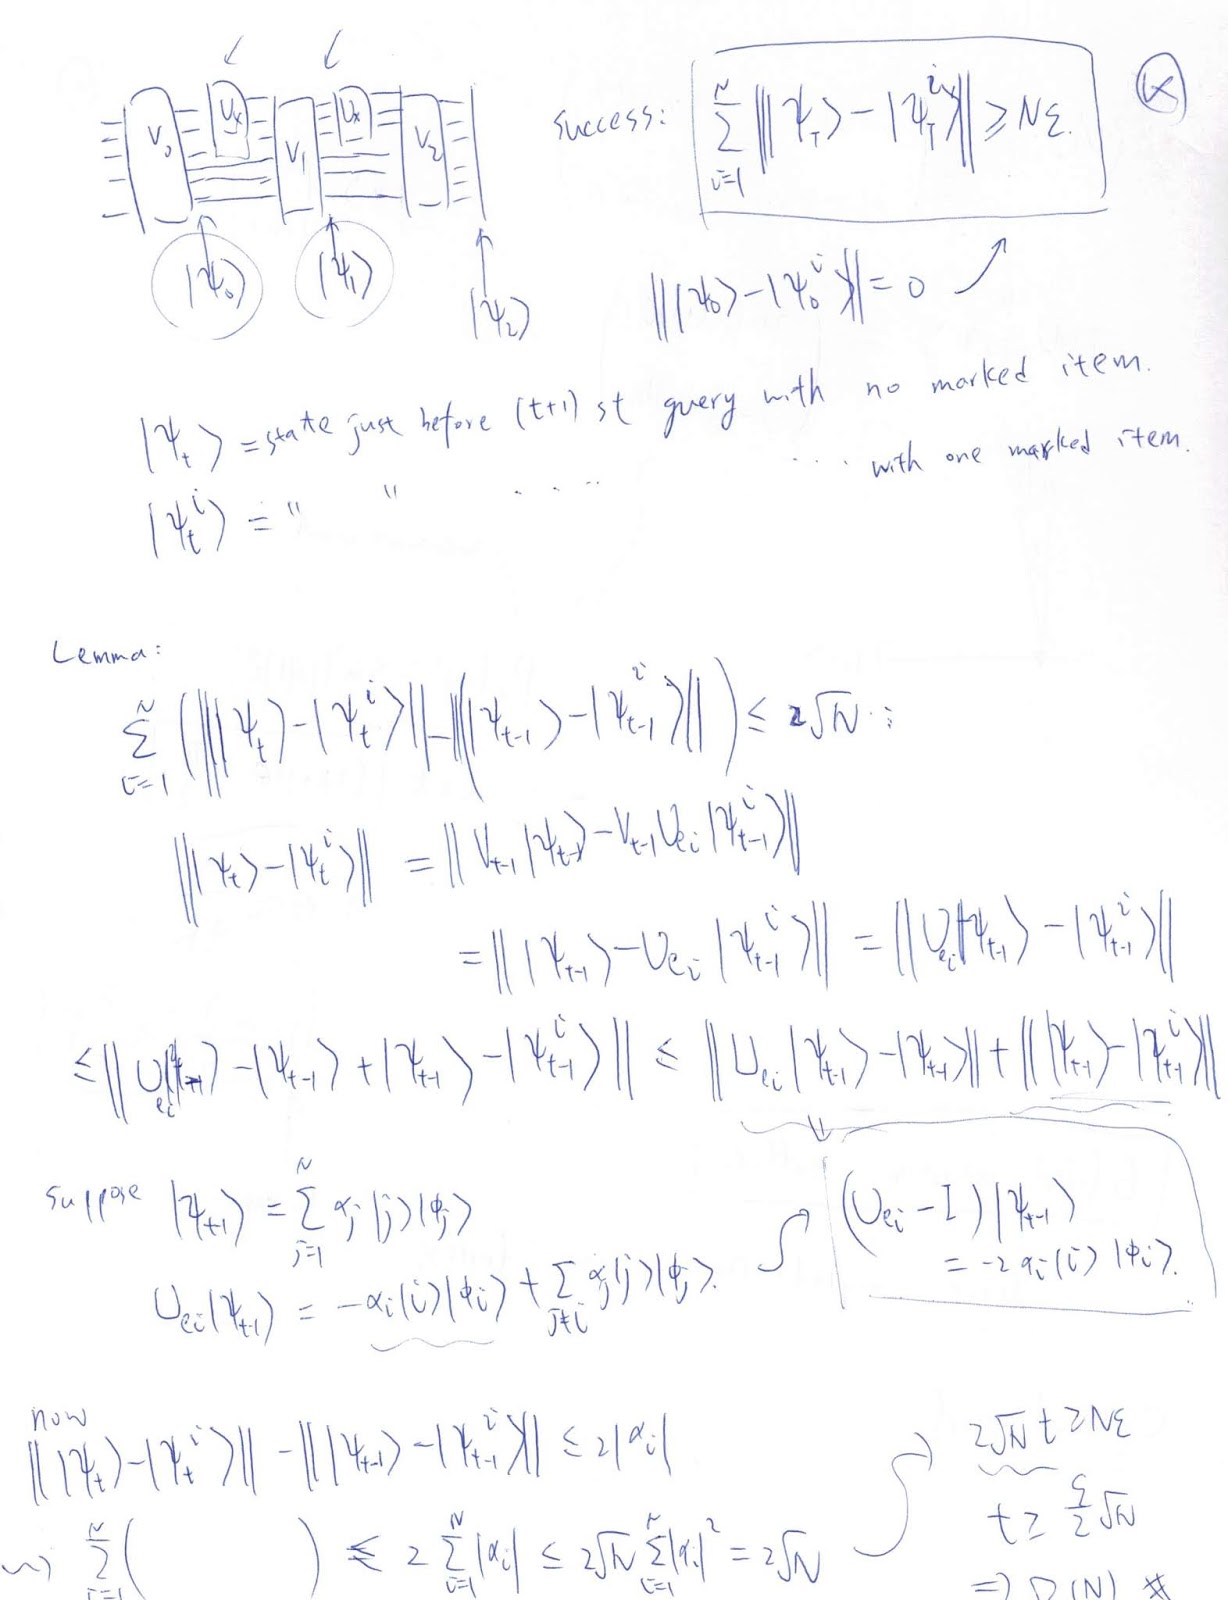 V₀ Uₓ V₁ Uₓ V₂
|ψ₀⟩ |ψ₁⟩ |ψ₂⟩
Success: ∑_{i=1}^{N} ‖|ψ_T⟩ − |ψ_T^i⟩‖ ≥ Nε.
‖|ψ₀⟩ − |ψ₀^i⟩‖ = 0
|ψ_t⟩ = state just before (t+1) st query with no marked item.
|ψ_t^i⟩ = " " . . . . . . . . with one marked item.
Lemma:
∑_{i=1}^{N} (‖|ψ_t⟩ − |ψ_t^i⟩‖ − ‖|ψ_{t-1}⟩ − |ψ_{t-1}^i⟩‖) ≤ 2√N :
‖|ψ_t⟩ − |ψ_t^i⟩‖ = ‖V_{t-1}|ψ_{t-1}⟩ − V_{t-1}U_{ei}|ψ_{t-1}^i⟩‖
= ‖|ψ_{t-1}⟩ − U_{ei}|ψ_{t-1}^i⟩‖ = ‖U_{ei}|ψ_{t-1}⟩ − |ψ_{t-1}^i⟩‖
≤ ‖U_{ei}|ψ_{t-1}⟩ − |ψ_{t-1}⟩ + |ψ_{t-1}⟩ − |ψ_{t-1}^i⟩‖ ≤ ‖U_{ei}|ψ_{t-1}⟩ − |ψ_{t-1}⟩‖ + ‖|ψ_{t-1}⟩ − |ψ_{t-1}^i⟩‖
Suppose |ψ_{t-1}⟩ = ∑_{j=1}^{N} α_j|j⟩|ϕ_j⟩
U_{ei}|ψ_{t-1}⟩ = −α_i|i⟩|ϕ_i⟩ + ∑_{j≠i} α_j|j⟩|ϕ_j⟩.
(U_{ei} − I)|ψ_{t-1}⟩
= −2α_i|i⟩|ϕ_i⟩.
now
‖|ψ_t⟩ − |ψ_t^i⟩‖ − ‖|ψ_{t-1}⟩ − |ψ_{t-1}^i⟩‖ ≤ 2|α_i|
⇝ ∑_{i=1}^{N} ( ) ≤ 2 ∑_{i=1}^{N} |α_i| ≤ 2√N ∑_{i=1}^{N} |α_i|² = 2√N
2√N t ≥ Nε
t ≥ ε/2 √N